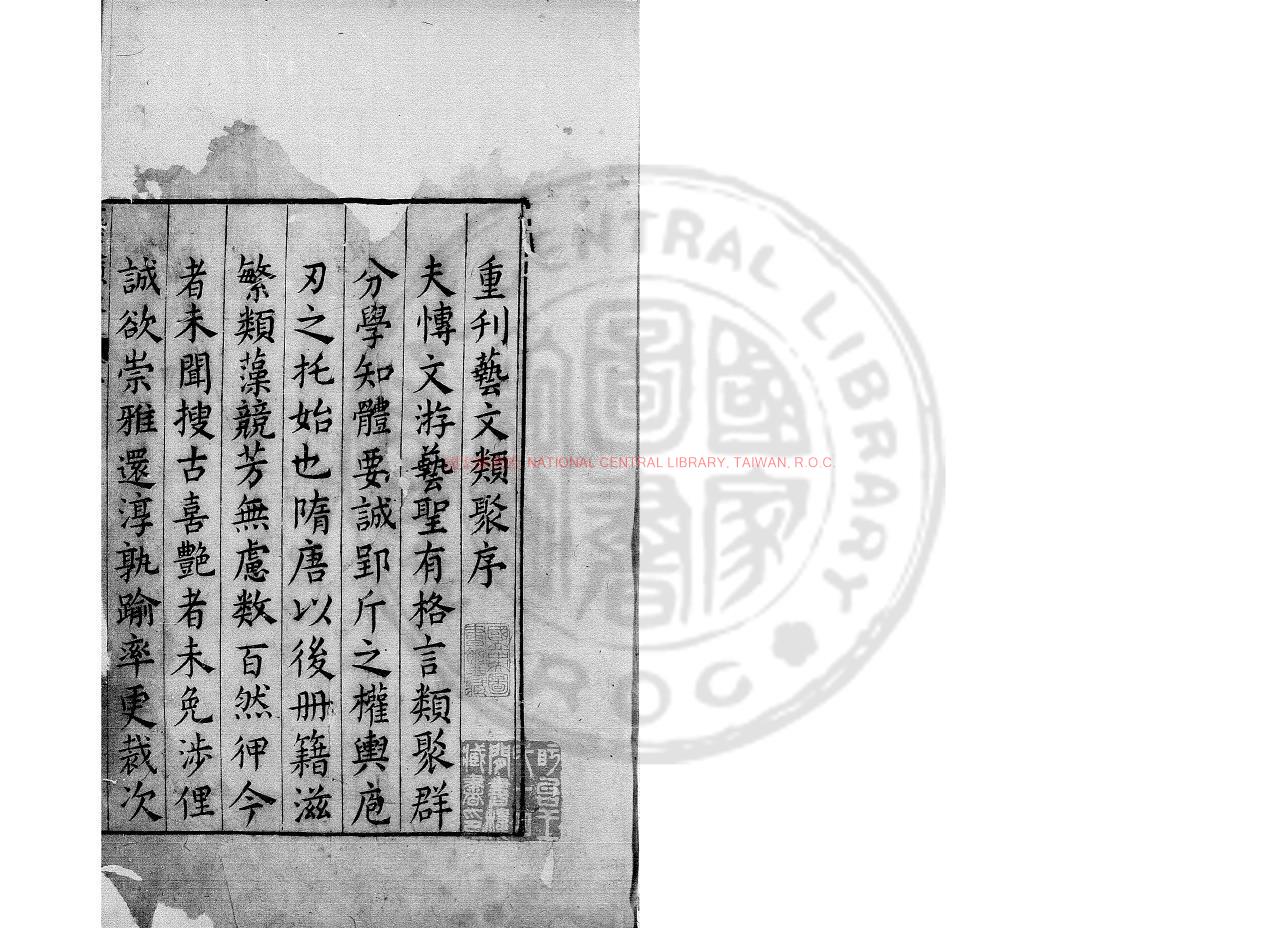 重刋藝文類聚序
夫慱文游藝聖有格言類聚群
分學知體要誠郢斤之權輿庖
刃之托始也隋唐以後冊籍滋
繁類藻競芳無慮数百然狎今
者未聞搜古喜艷者未免涉俚
誠欲崇雅還淳孰踰率更裁次
NATIONAL CENTRAL LIBRARY, TAIWAN, R.O.C.
CENTRAL LIBRARY
ROC